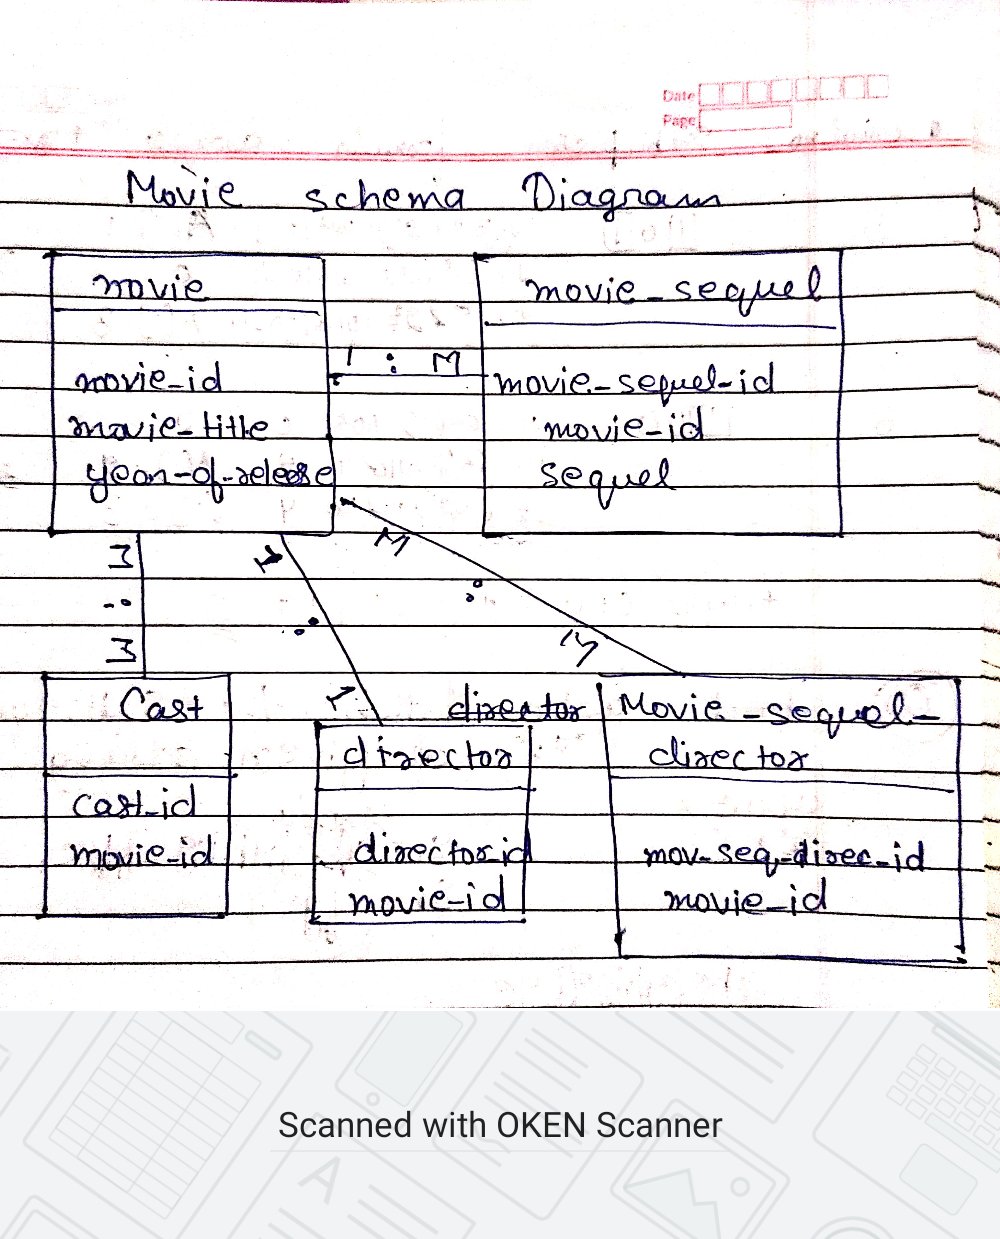 Date
Page
Movie schema Diagram
movie
movie_sequel
1 : M
movie-id
movie-title
year-of-release
movie-sequel-id
movie-id
sequel
M : M
1 : 1
M : M
Cast
cast-id
movie-id
director
director
director-id
movie-id
Movie-sequel-
director
mov-seq-direc-id
movie_id
Scanned with OKEN Scanner